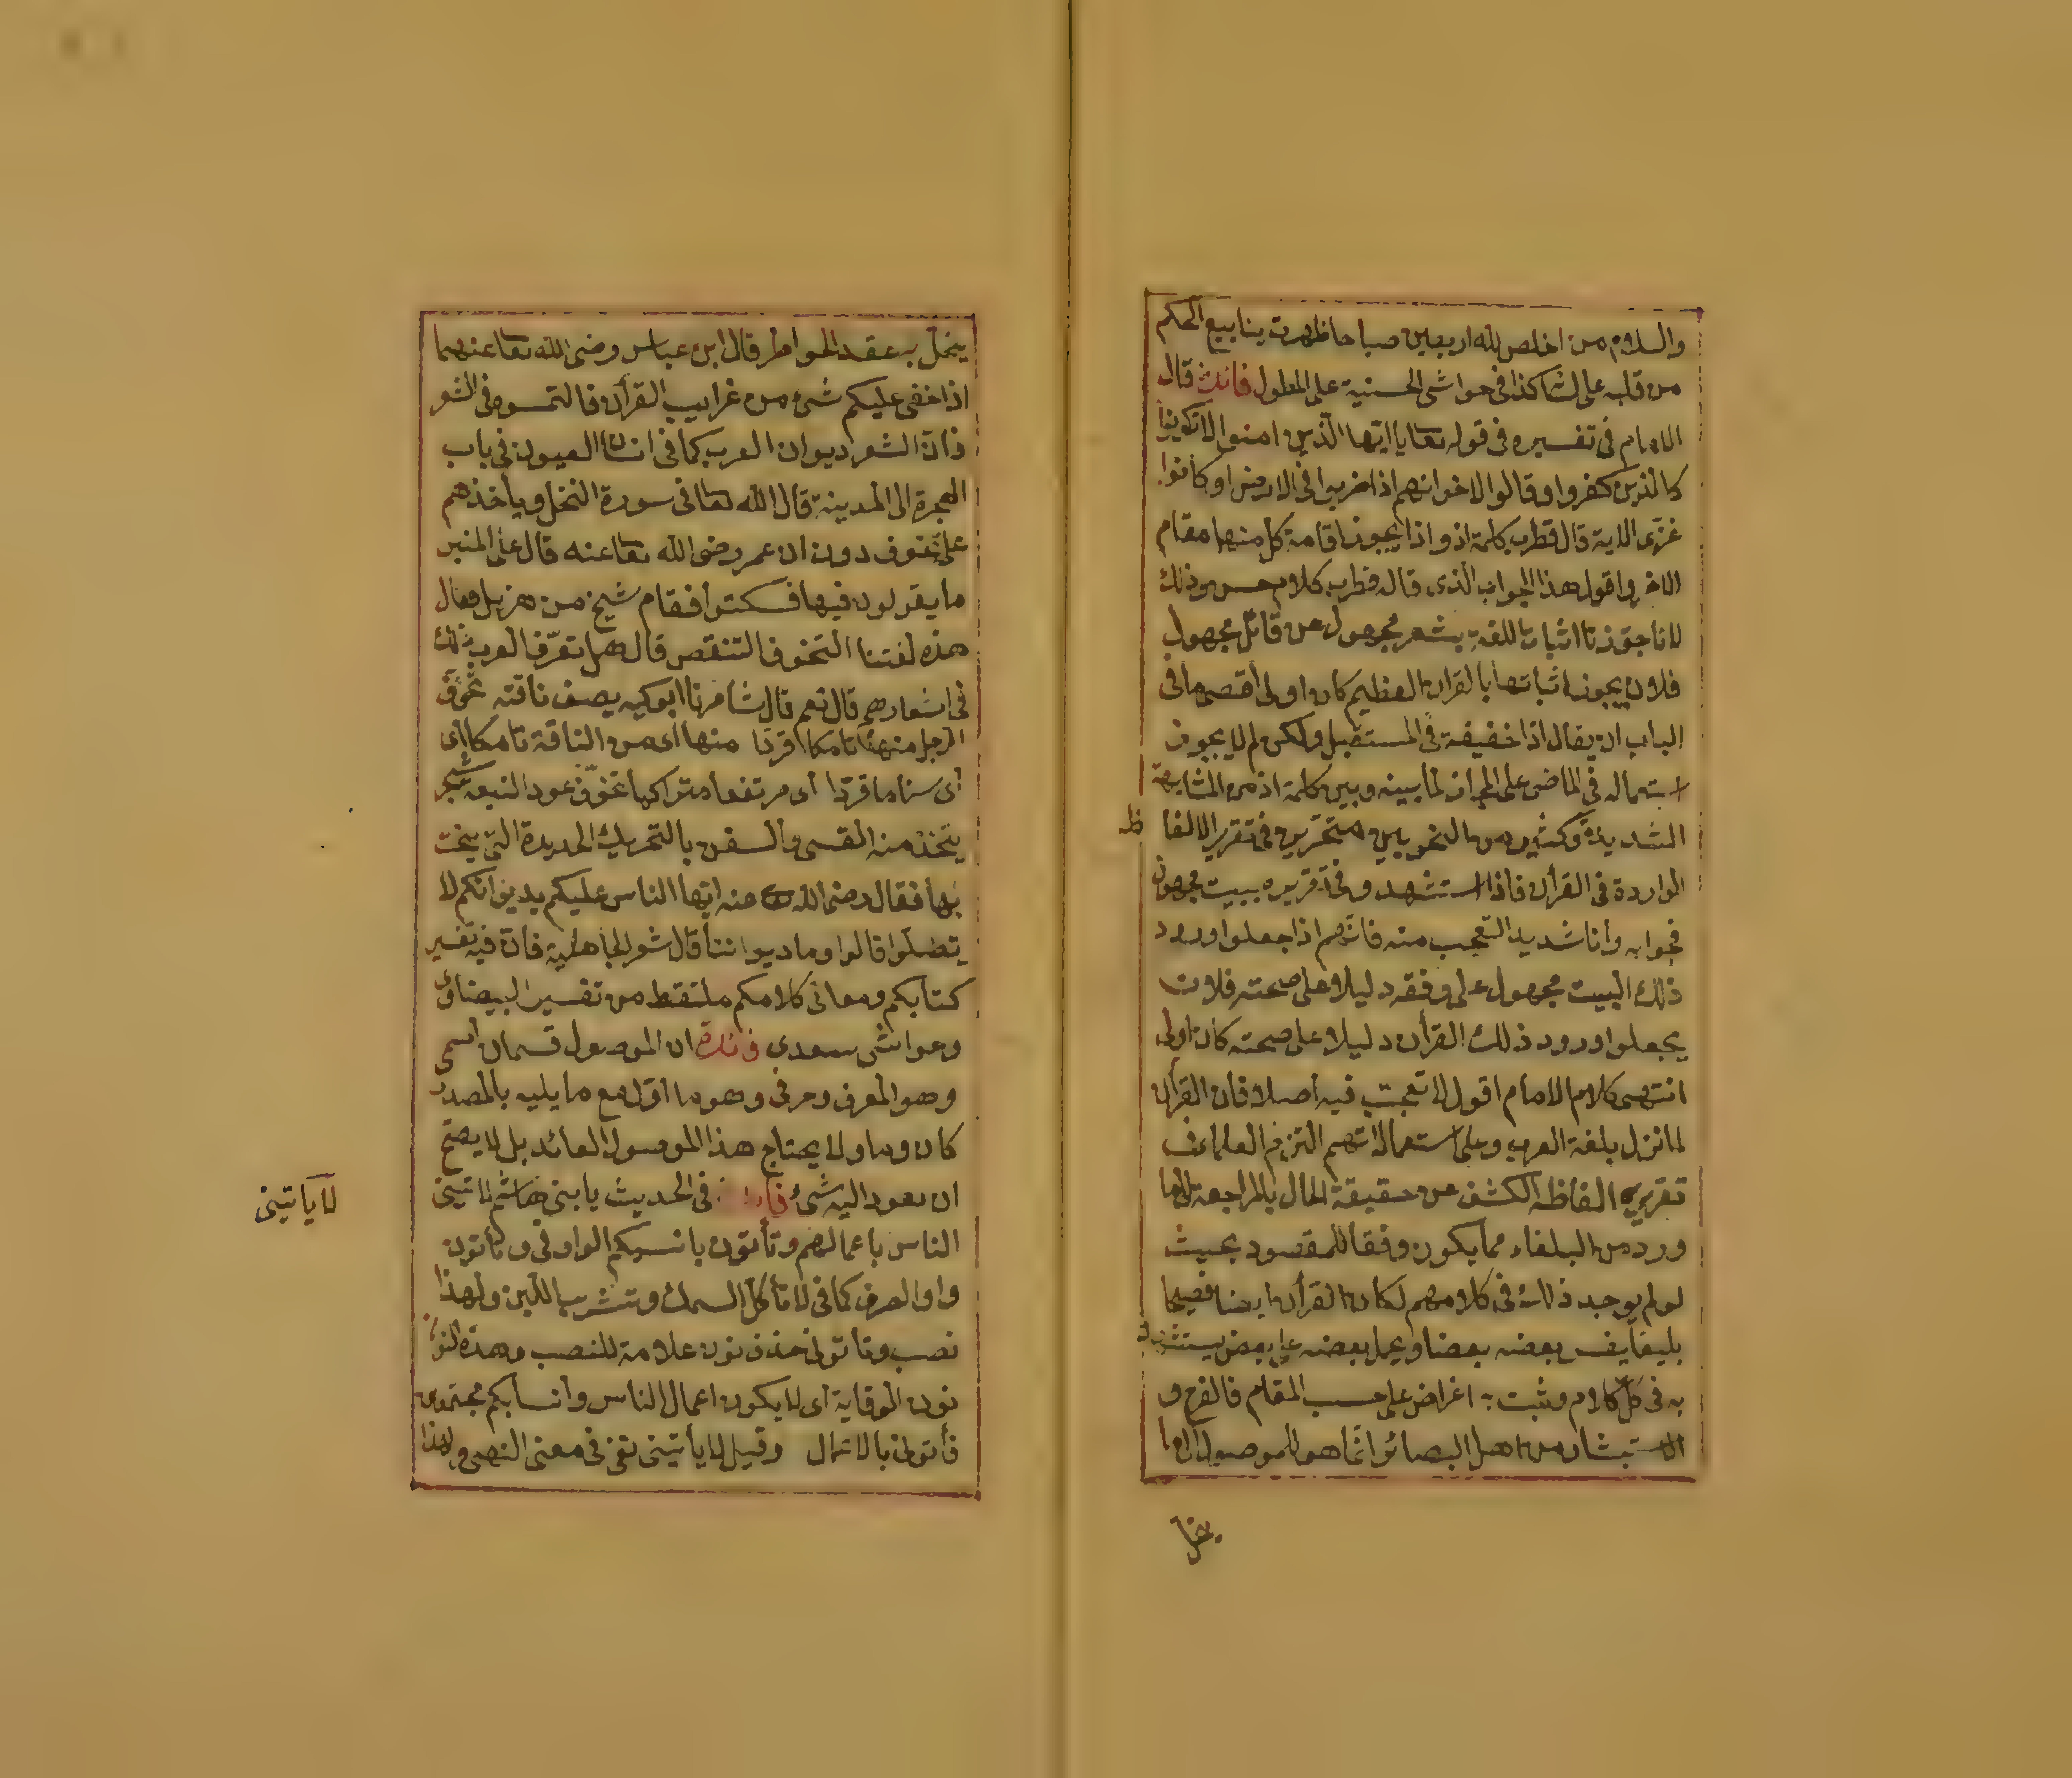 والسلام من اخلص لله اربعين صباحا ظهرت ينابيع الحكم
من قلبه على لسا كذا في حواشى الحسنية على المطول فائدة قال
الامام فى تفسيره فى قوله تعا يا ايها الذين امنوا لا تكونوا
كالذين كفروا وقالوا لاخوانهم اذا ضربوا فى الارض او كانوا
غزّى الاية قال قطرب كلمة اذ واذا يجوز اقامة كل منها مقام
الاخر واقول هذا الجواب الذى قاله قطرب كلام حسن وذلك
لانا جوزنا اثبات اللغة بشعر مجهول من قائل مجهول
فلان يجوز اثباتها بالقران العظيم كان اولى اقصى ما فى
الباب ان يقال اذا حقيقة فى المستقبل ولكن لم لا يجوز
استعماله فى الماضى على المجاز لما بينه وبين كلمة اذ من المشابهة
الشديدة وكثير من النحويين متحيّرين فى تقرير الالفا
ظ
الواردة فى القرأن فاذا استشهد وفى تقريره ببيت مجهول
فجوابه وأنا شديد التعجب منه فانهم اذا جعلوا ورود
ذلك البيت مجهول على وفقه دليلا على صحته فلان
يجعلوا ورود ذلك القرأن دليلا على صحته كان اولى
انتهى كلام الامام اقول لا تعجب فيه اصلا فان القرأن
لما نزل بلغة العرب وعلى استعمالاتهم التزم العلماء فى
تقرير الفاظه الكشف عن حقيقة الحال بالمراجعة الى ما
ورد من البلغاء مما يكون وفقا للمقصود بحيث
لو لم يوجد ذلك فى كلامهم لكان القرأن ايضا فصيحا
بليغا يفسر بعضه بعضا ويحمل بعضه على بعض يستشهد
به فى كل كلام ومثبت اغراض على حسب المقام فالفرح و
الاستبشار من اهل البصائر انما هو للموصول الى ما
ينحل به عقد الخواطر قال ابن عباس رضى الله تعا عنهما
اذا خفى عليكم شئ من غرايب القرأن فالتمسوه فى الشعر
فان الشعر ديوان العرب كما فى انسان العيون فى باب
الهجرة الى المدينة قال الله تعا فى سورة النحل ويأخذهم
على تخوف دون ان عمر رضى الله تعا عنه قال على المنبر
ما يقولون فيها فسكتوا فقام شيخ من هزيل فقال
هذه لغتنا التخوف التنقص قال هل تعرّف العرب ذلك
فى اشعارهم قال نعم قال شاعرنا ابو كبير يصف ناقته تخوّف
الرحل منها تامكا قردا منها اى من الناقة تامكا اى
أى سناما قردا اى مرتفعا متراكبا تخوّف عود النبعة شجر
يتخذ منه القسى والسفن بالتحريك الحديدة التى ينحت
بها فقال رضى الله عنه ايها الناس عليكم بديوانكم لا
تضلوا قالوا وما ديواننا قال شعر الجاهلية فان فيه تفسير
كتابكم ومعانى كلامكم ملتقط من تفسير البيضاوى
وحواشى سعدى فائدة ان الموصول قسمان اسمى
وهو المعرف وحرفى وهو ما اوّل مع ما يليه بالمصدر
كان وما ولا يحتاج هذا الموصول العائد بل لا يصح
ان يعود اليه شئ فائدة فى الحديث يا بنى هاشم لا تينى
لا يأتينى
الناس باعمالهم وتأتون بانسبكم الواو فى وتأتون
واو الصرف كما فى لا تأكل السمك وتشرب اللبن ولهذا
نصب وتأتونى حذف نون علامة للنصب وهذه النون
نون الوقاية اى لا يكون اعمال الناس وانسابكم مجتمعين
فأتونى بالاعمال وقيل لا يأتينى نفى فى معنى النهى ولهذا